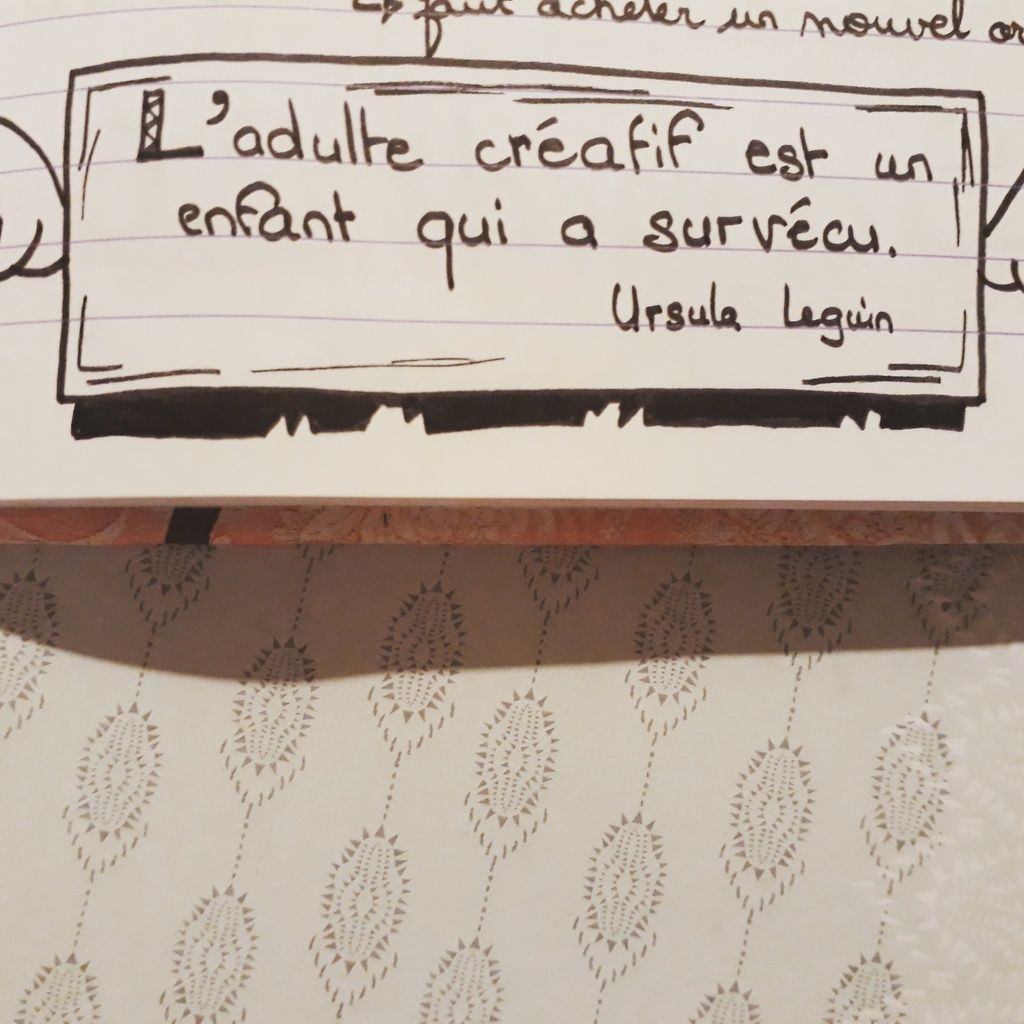 ↳ faut acheter un nouvel or
L'adulte créatif est un
enfant qui a survécu.
Ursula Leguin